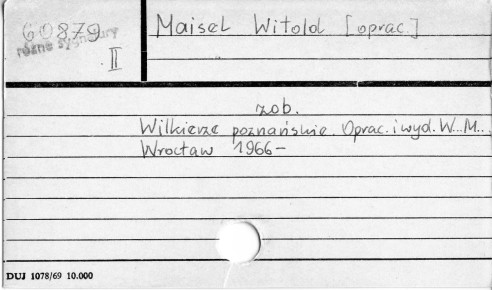 60879
różne sygnatury
II
Maisel Witold [oprac.]
zob.
Wilkierze poznańskie. Oprac. i wyd. W... M...
Wrocław 1966-
DUJ 1078/69 10.000